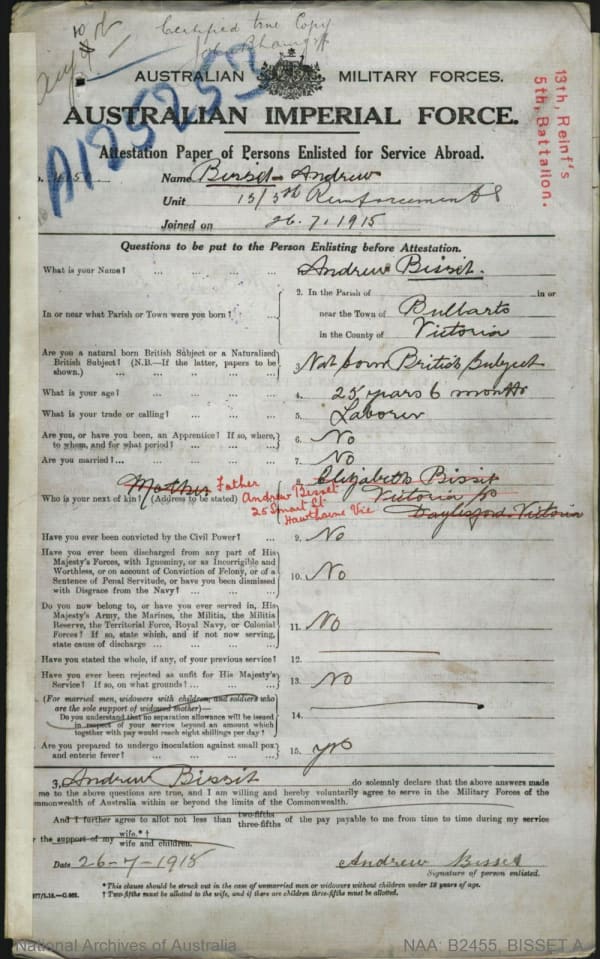 Certified true Copy
A125253
AUSTRALIAN MILITARY FORCES.
AUSTRALIAN IMPERIAL FORCE.
13th, Reinf's
5th, Battalion.
Attestation Paper of Persons Enlisted for Service Abroad.
Name Bissit Andrew
Unit 13/5th Reinforcements
Joined on 26.7.1915
Questions to be put to the Person Enlisting before Attestation.
What is your Name? ... ... ... ... Andrew Bissit.
2. In the Parish of in or
In or near what Parish or Town were you born? near the Town of Bullarto
in the County of Victoria
Are you a natural born British Subject or a Naturalized British Subject? (N.B.—If the latter, papers to be shown.) ... 3. Nat born British Subject
What is your age? ... ... ... ... 4. 25 years 6 months
What is your trade or calling? ... ... ... 5. Laborer
Are you, or have you been, an Apprentice? If so, where, to whom, and for what period? ... ... 6. No
Are you married? ... ... ... ... 7. No
Mother Father 8. Elizabeth Bissit
Who is your next of kin? (Address to be stated) Andrew Bisset Victoria
25 Smart St Daylesford Victoria
Hawthorne Vic
Have you ever been convicted by the Civil Power? ... 9. No
Have you ever been discharged from any part of His Majesty's Forces, with Ignominy, or as Incorrigible and Worthless, or on account of Conviction of Felony, or of a Sentence of Penal Servitude, or have you been dismissed with Disgrace from the Navy? ... ... 10. No
Do you now belong to, or have you ever served in, His Majesty's Army, the Marines, the Militia, the Militia Reserve, the Territorial Force, Royal Navy, or Colonial Forces? If so, state which, and if not now serving, state cause of discharge ... ... 11. No
Have you stated the whole, if any, of your previous service? 12.
Have you ever been rejected as unfit for His Majesty's Service? If so, on what grounds? ... ... 13. No
(For married men, widowers with children, and soldiers who are the sole support of widowed mother)—
Do you understand that no separation allowance will be issued in respect of your service beyond an amount which together with pay would reach eight shillings per day? 14.
Are you prepared to undergo inoculation against small pox and enteric fever? ... ... ... 15. yes
I, Andrew Bissit do solemnly declare that the above answers made
me to the above questions are true, and I am willing and hereby voluntarily agree to serve in the Military Forces of the
mmonwealth of Australia within or beyond the limits of the Commonwealth.
And I further agree to allot not less than two-fifths three-fifths of the pay payable to me from time to time during my service
the support of my wife.* † wife and children.
Date 26-7-1915 Andrew Bisset
Signature of person enlisted.
*This clause should be struck out in the case of unmarried men or widowers without children under 18 years of age.
† Two-fifths must be allotted to the wife, and if there are children three-fifths must be allotted.
National Archives of Australia NAA: B2455, BISSET A